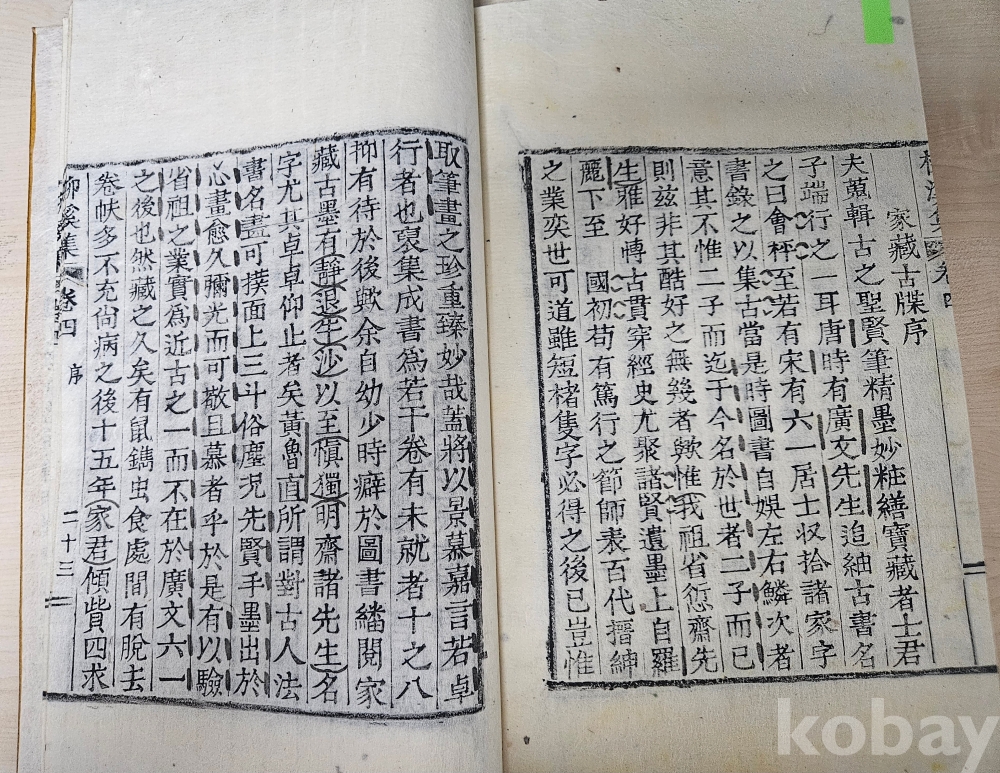 柳溪集 卷四
家藏古牒序
夫蒐輯古之聖賢筆精墨妙粧繕寶藏者士君
子端行之一耳唐時有廣文先生追紬古書名
之曰會稡至若有宋有六一居士収拾諸家字
書錄之以集古當是時圖書自娛左右鱗次者
意其不惟二子而迄于今名於世者二子而已
則玆非其酷好之無幾者歟惟我祖省愆齋先
生雅好博古貫穿經史尤聚諸賢遺墨上自羅
麗下至 國初苟有篤行之節師表百代搢紳
之業奕世可道雖短楮隻字必得之後已豈惟
取筆畫之珍重臻妙哉蓋將以景慕嘉言若卓
行者也裒集成書為若干卷有未就者十之八
抑有待於後歟余自幼少時癖於圖書繙閱家
藏古墨有靜退生沙以至愼獨明齋諸先生名
字尤其卓卓仰止者矣黃魯直所謂對古人法
書名畫可撲面上三斗俗塵況先賢手墨出於
心畫愈久彌光而可敬且慕者乎於是有以驗
省祖之業實為近古之一而不在於廣文六一
之後也然藏之久矣有鼠鐫虫食處間有脫去
卷帙多不充尙病之後十五年家君傾貲四求
柳溪集 卷四 序 二十三
kobay